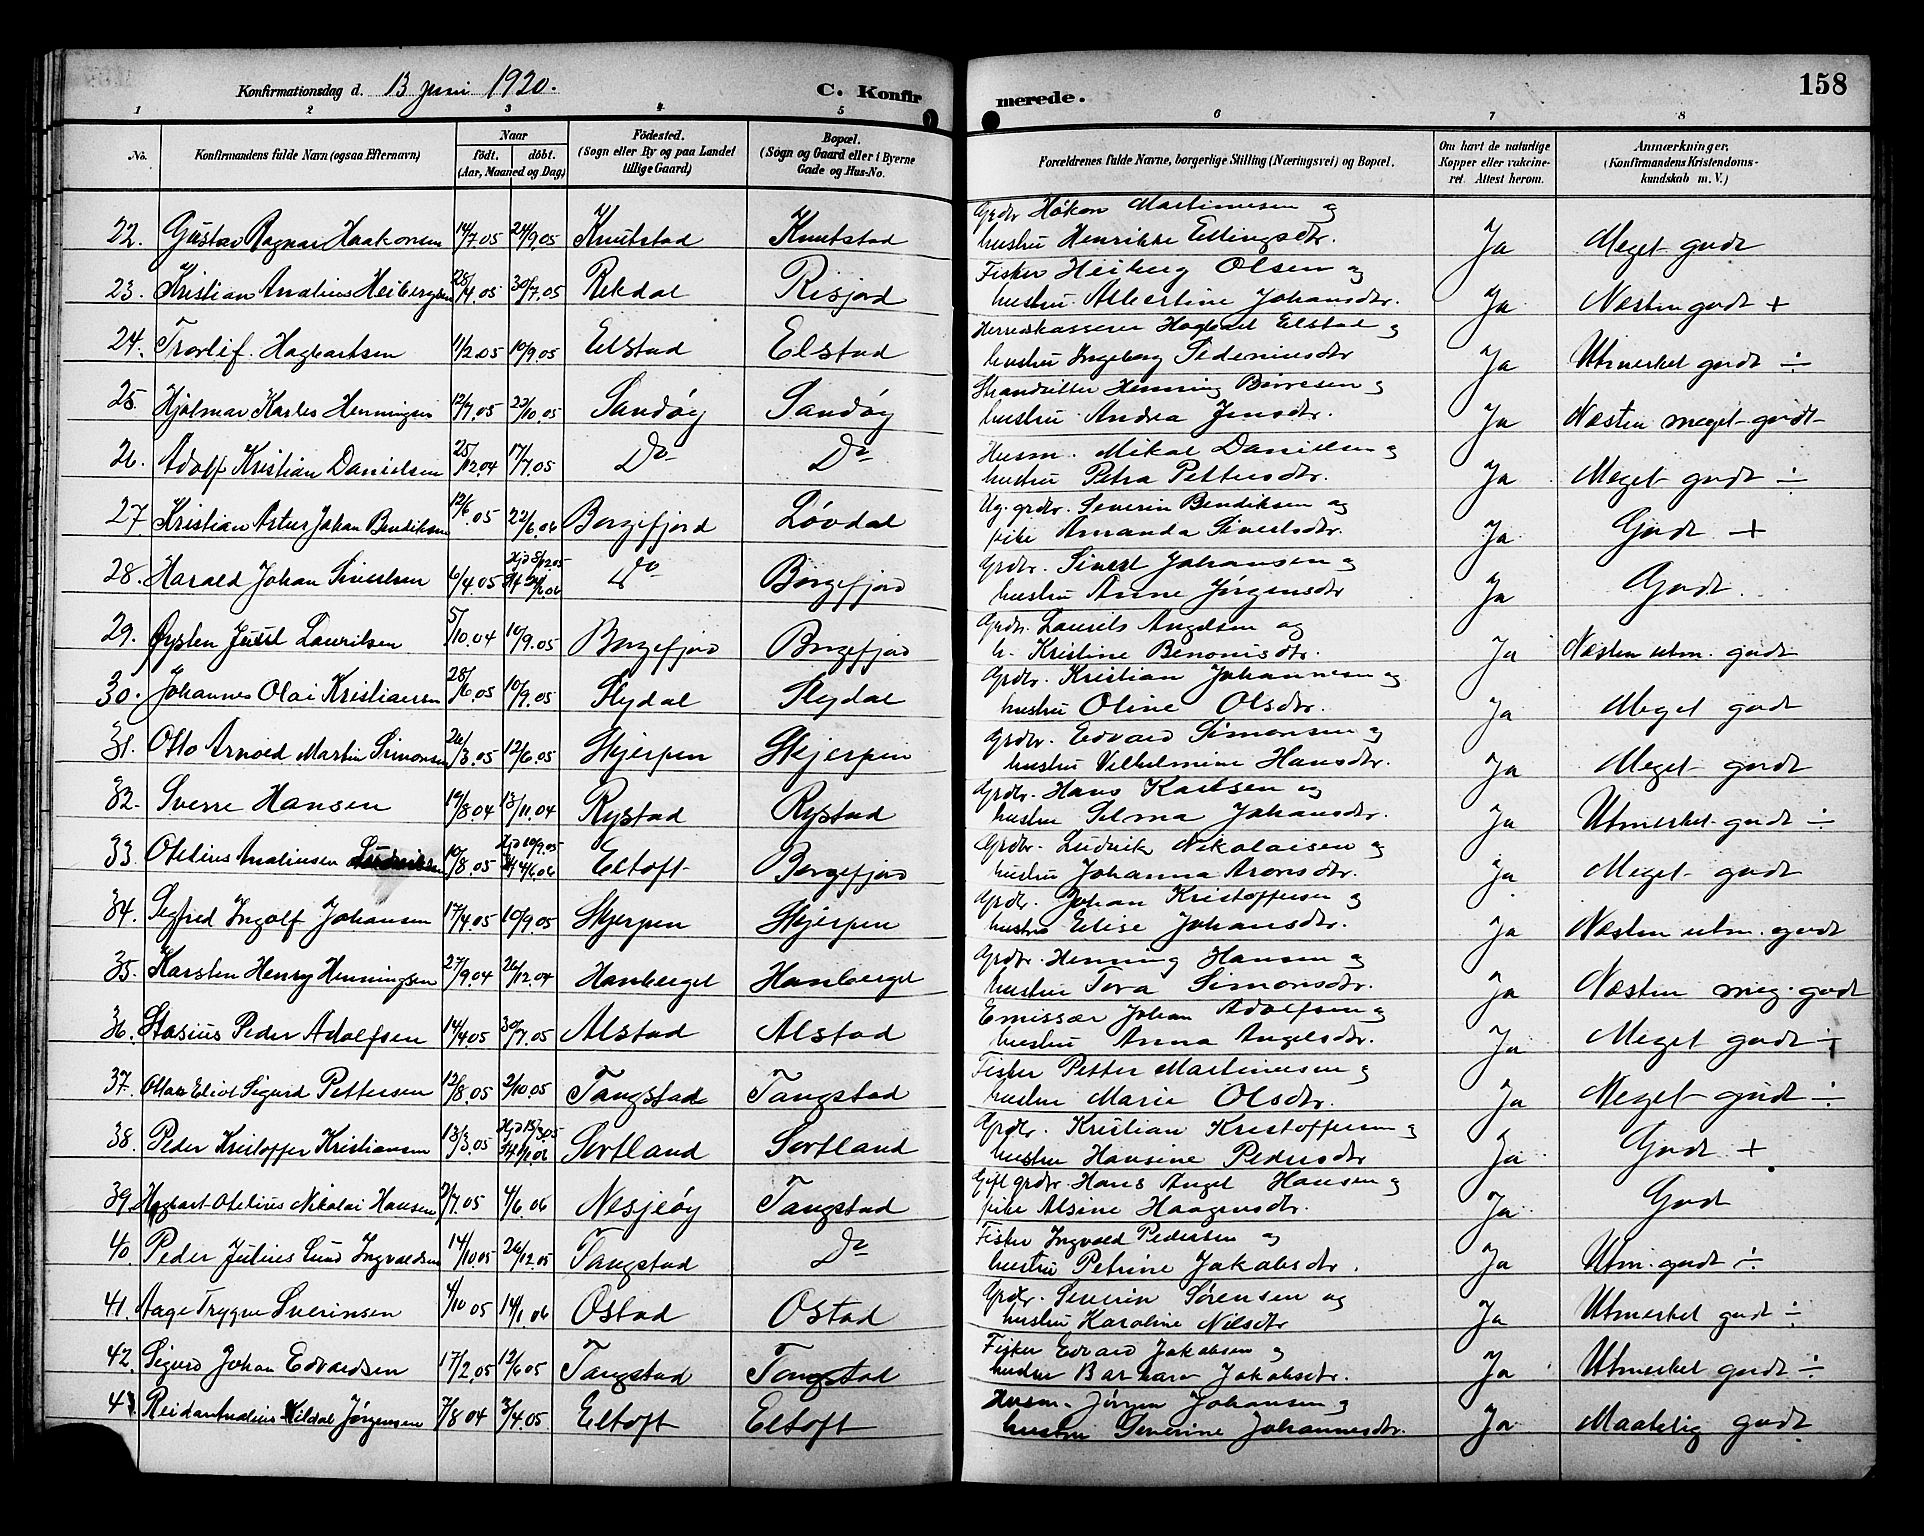 158
Konfirmationsdag d. 13 Juni 1920.
C. Konfirmerede.
1 2 3 4 5 6 7 8
No.
Konfirmandens fulde Navn (ogsaa Efternavn)
Naar
födt. döbt.
(Aar, Maaned og Dag)
Födested.
(Sogn eller By og paa Landet
tillige Gaard)
Bopæl.
(Sogn og Gaard eller i Byerne
Gade og Hus-No.
Forældrenes fulde Navne, borgerlige Stilling (Næringsvei) og Bopæl.
Om havt de naturlige
Kopper eller vakcine-
ret. Attest herom.
Anmærkninger.
(Konfirmandens Kristendoms-
kundskab m. V.)
22. Gustav Ragnar Haakonsen 14/7.05 24/9.05 Knutstad Knutstad Grdbr Håkon Martinusen og
hustru Henrikke Ellingsdtr. Ja Meget godt
23. Kristian Analius Heibergsen 28/4.05 30/7.05 Rekdal Risjord Fisker Heiberg Olsen og
hustru Albertine Johansdtr. Ja Næsten godt +
24. Torleif Hagbartsen 11/2.05 10/9.05 Elstad Elstad Herredskasserer Hagbart Elstad og
hustru Ingeborg Pedersdtr Ja Utmerket godt ÷
25. Hjalmar Karles Henningsen 12/7.05 22/10.05 Sandöy Sandöy Strandsitter Henning Børresen og
hustru Andrea Jensdtr. Ja Næsten meget godt
26. Adolf Kristian Danielsen 25/12.04 17/7.05 Do Do Husm. Mikal Danielsen og
hustru Petra Pettersdtr. Ja Meget godt ÷
27. Kristian Artur Johan Bendiksen 12/6.05 22/6.06 Borgefjord Løvdal Ug. grdbr. Severin Bendiksen og
pike Amanda Sivertsdtr. Ja Godt +
28. Harald Johan Sivertsen 6/4.05 Do Borgefjord Grdbr. Sivert Johansen og
hustru Anne Jørgensdtr Ja Godt.
29. Øysten Juul Lauritsen 5/10.04 10/9.05 Borgefjord Borgefjord Grdbr. Laurits Angelsen og
h. Kristine Benonisdtr. Ja Næsten utm. godt
30. Johannes Olai Kristiansen 28/6.05 10/9.05 Slydal Slydal Grdbr. Kristian Johannesen og
hustru Oline Olsdtr. Ja Meget godt
31. Otto Arnold Martin Simonsen 26/3.05 12/6.05 Skjerpen Skjerpen Grdbr. Edvard Simonsen og
hustru Vilhelmine Hansdtr. Ja Meget godt
32. Sverre Hansen 19/8.04 13/11.04 Rystad Rystad Grdbr. Hans Karlsen og
hustru Selma Johansdtr. Ja Utmerket godt ÷
33. Otelius Analiusen Ludviksen 10/8.05 Hjd 10/9.05 4/6.06 Eltoft Borgefjord Grdbr. Ludvik Nikolaisen og
hustru Johanna Aronsdtr. Ja Meget godt
34. Sigfred Ingolf Johansen 17/4.05 10/9.05 Skjerpen Skjerpen Grdbr. Johan Kristoffersen og
hustru Elise Johansdtr. Ja Næsten utm. godt
35. Karsten Henry Henningsen 27/9.04 26/12.04 Hanberget Hanberget Grdbr. Henning Hansen og
hustru Tora Simonsdtr. Ja Næsten meg. godt
36. Stasius Peder Adolfsen 14/4.05 30/7.05 Alstad Alstad Emissær Johan Adolfsen og
hustru Anna Angelsdtr. Ja Meget godt
37. Ottar Eliot Sigurd Pettersen 12/8.05 2/10.05 Tangstad Tangstad Fisker Petter Martinusen og
hustru Marie Olsdtr. Ja Meget godt ÷
38. Peder Kristoffer Kristiansen 13/3.05 Sortland Sortland Grdbr. Kristian Kristoffersen og
hustru Hansine Pedersdtr Ja Godt +
39. Hagbart Otelius Nikolai Hansen 2/7.05 4/6.06 Nesjeöy Tangstad Gift grdbr. Hans Angel Hansen og
pike Alsine Haagensdtr. Ja Godt
40. Peder Julius Lund Ingvaldsen 14/10.05 26/12.05 Tangstad Do Fisker Ingvald Pedersen og
hustru Petrine Jakobsdtr. Ja Utm. godt ÷
41. Aage Trygve Sverinsen 4/10 05 14/1.06 Ostad Ostad Grdbr. Severin Sørensen og
hustru Karoline Nilsdtr Ja Utmerket godt ÷
42. Sigurd Johan Edvardsen 17/2.05 12/6.05 Tangstad Tangstad Fisker Edvard Jakobsen og
hustru Barbara Jakobsdtr. Ja Utmerket godt ÷
43 Reidar Analius Vildal Jørgensen 7/8 04 3/4.05 Eltoft Eltoft Husm. Jörgen Johansen og
hustru Severine Johannesdtr. Ja Maatelig godt